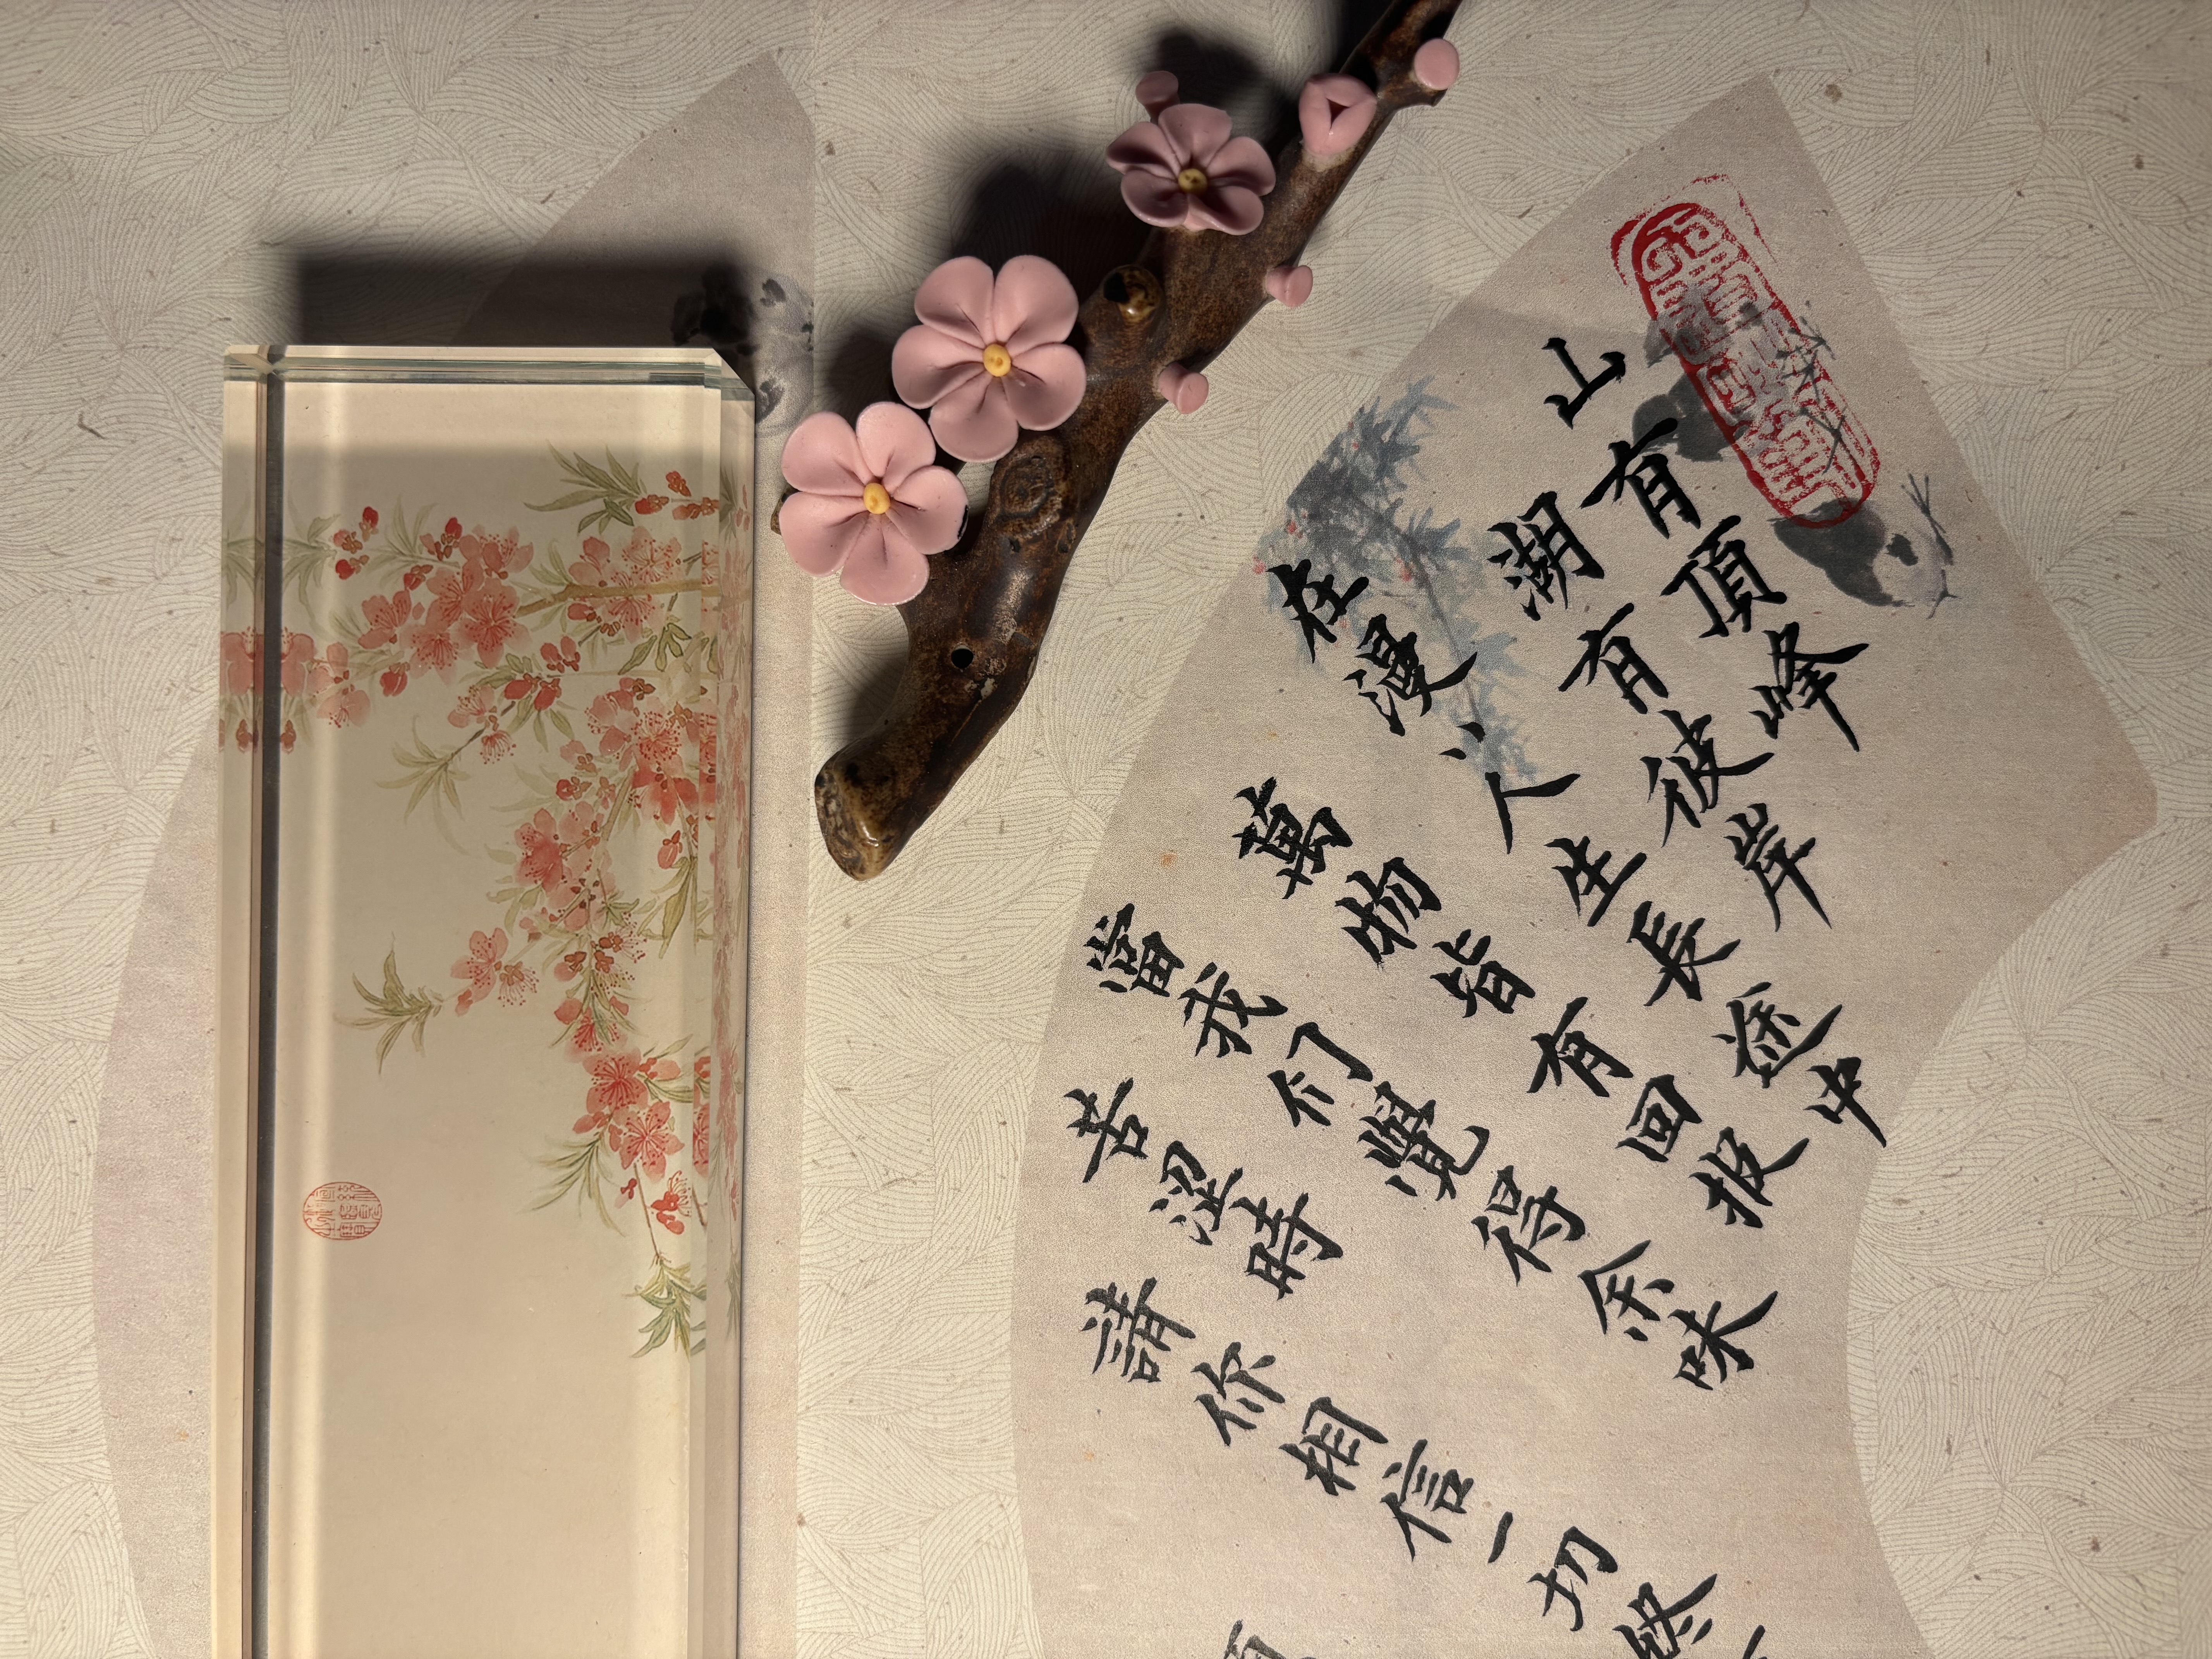 山有頂峰
湖有彼岸
在漫〻人生長途中
萬物皆有回报
當我们覺得余味
苦涩時
請你相信一切终